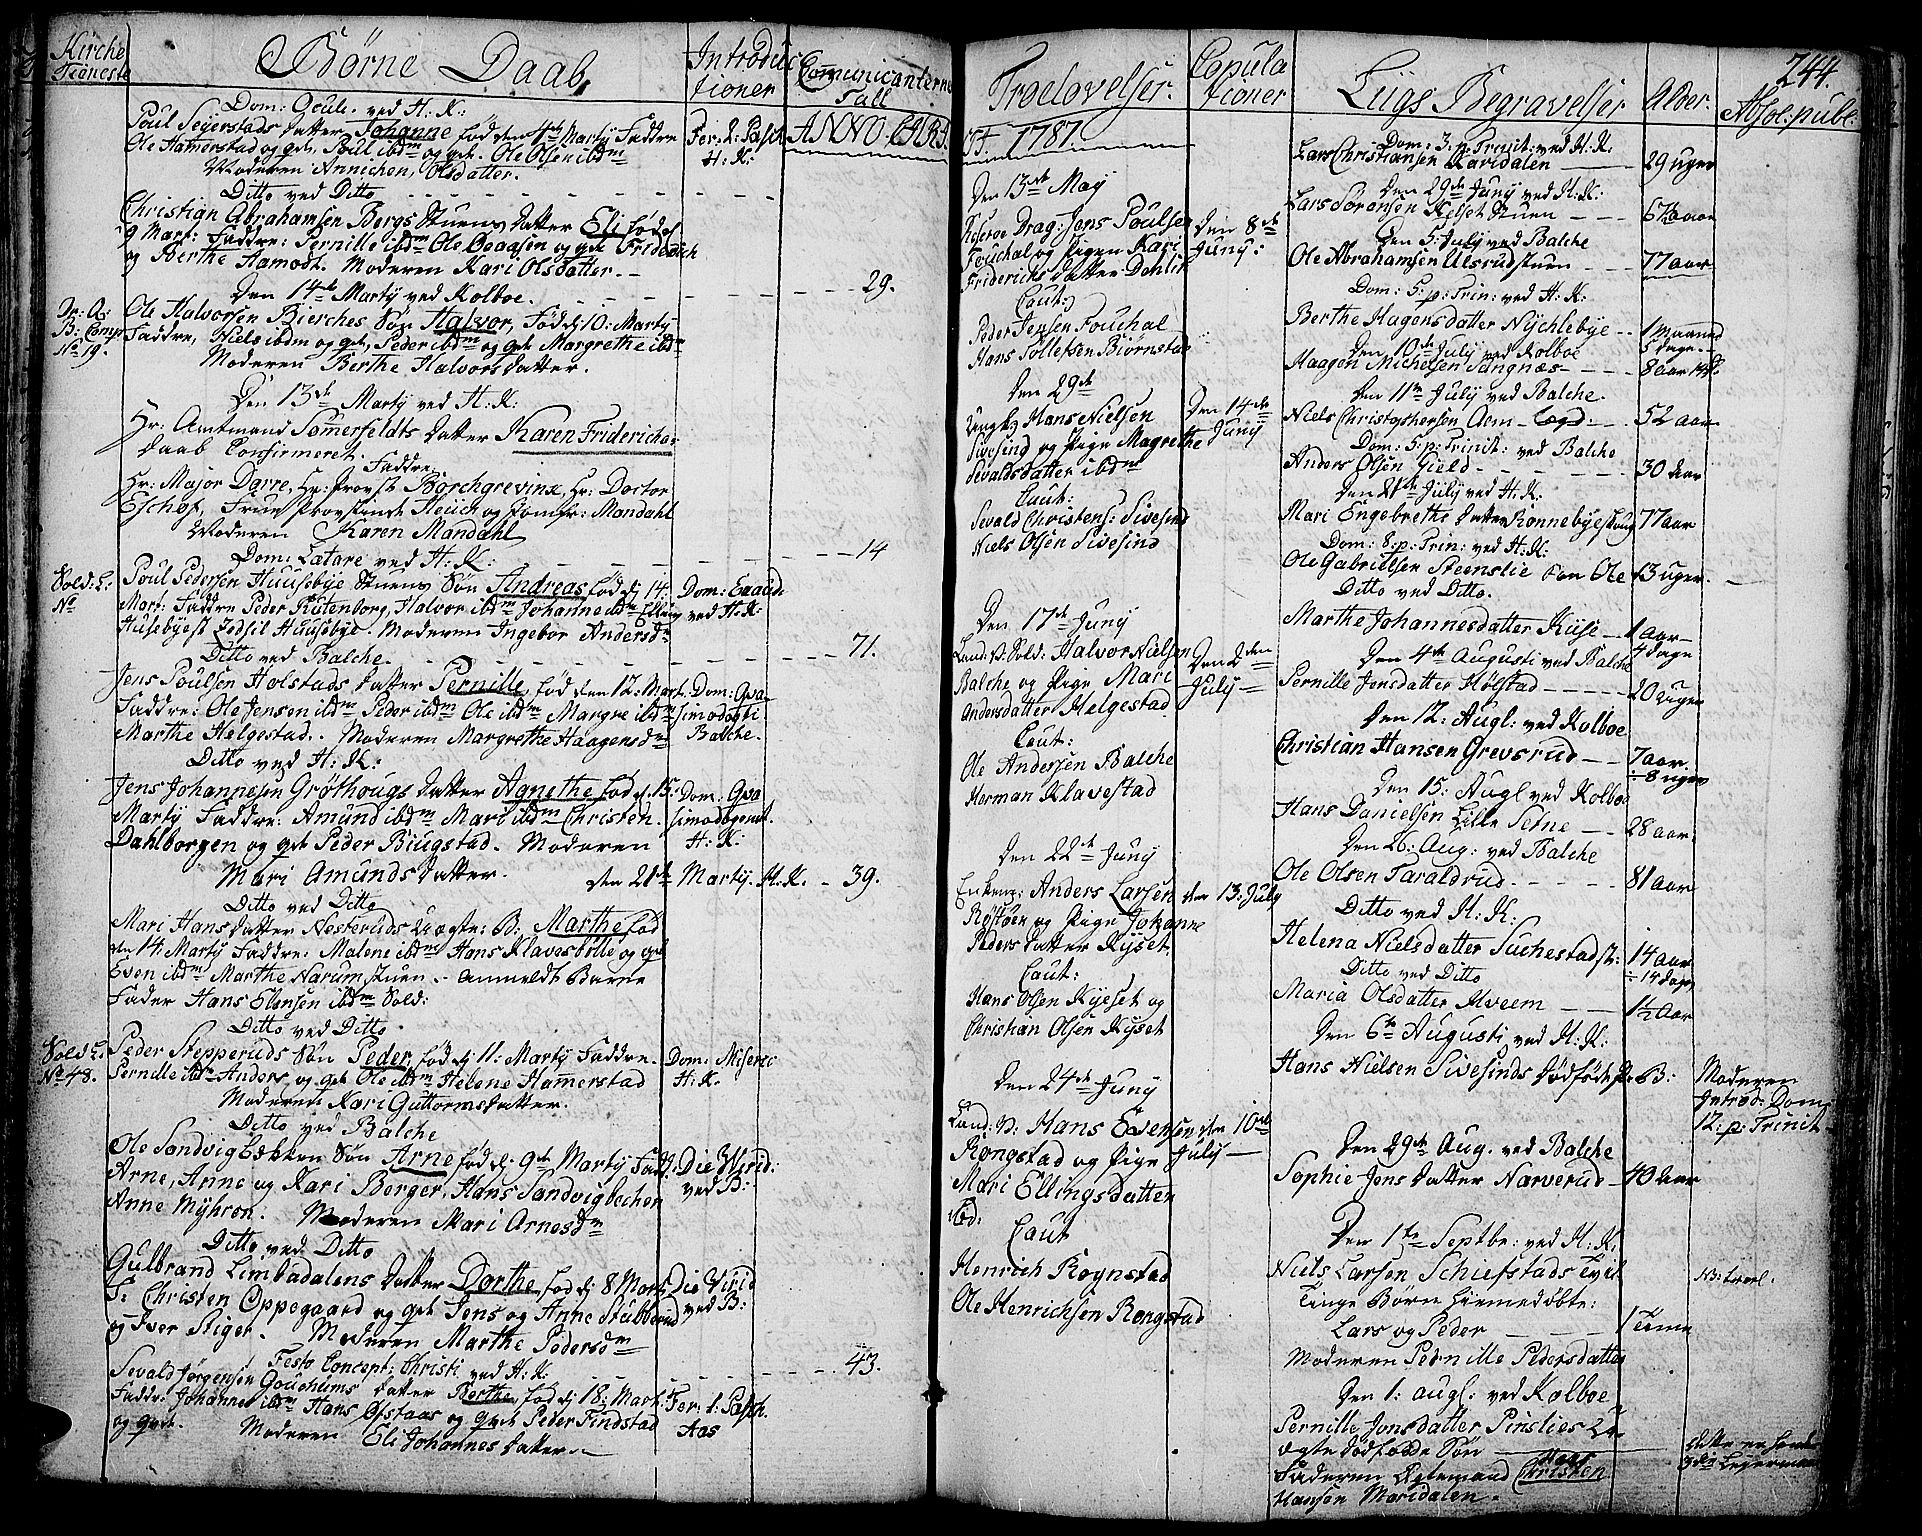 Kirche
Tieneste
Børne Daab
Introduc
tioner
Comunicanternes
Tall
ANNO CHRI
Dom: Oculi ved H: K:
Poul Seyerstads datter Johanne fød den 4de Marty Faddre
Ole Hamerstad og qvi. Poul ibdm og qvi. Ole Olsen ibdm
Moderen Annichen Olsdatter.
Fer: 2: Pasch
H: K:
Ditto ved Ditto
Christian Abrahamsen Bergs Stuens datter Eli fød d
9 Mart: Faddre: Pernille ibdm Ole Ibdm og qvi Friderich
og Berthe Aamodt. Moderen Kari Olsdatter.
Den 14de Marty ved Kolboe. 29.
No 19.
Ole Halvorsen Bierches Søn Halvor, Fød d: 10: Marty
Faddre, Niels ibdm og qvi, Peder ibdm og qvi Margrethe ibdm
Moderen Berthe Halvors datter.
Den 13de Marty ved H: K:
Hr: Amtmand Somerfeldts datter Karen Fridericha
Daab Confirmeret. Faddre
Hr: Major Darre, Hr: Provst Borchgrevinx, Hr: Doctor
Eschof, Frue Provstinde Heuch og Jomfr: Mandahl
Moderen Karen Mandahl
Dom: Lætare ved H: K: 14
Sold: L:
No
Poul Pedersen Huusebye Stuens Søn Andreas fød d: 14:
Mart: Faddre Peder Rutenborg, Halvor ibdm Johanne ibdm Elling
Husebyest Zidsil Huusebye. Moderen Ingebor Andersdr
Dom: Exaudi
ved H: K:
Ditto ved Balche. 71.
Jens Poulsen Holstads datter Pernille fød den 12: Mart.
Faddre: Ole Jensen ibdm Peder ibdm Ole ibdm Margre ibdm
Marthe Helgestad. Moderen Margrethe Haagensdr
Dom: Qva
simodogti
Balche.
Ditto ved H: K:
Jens Johannesen Grøthougs datter Agnethe fød d: 15:
Marty Faddre. Amund ibdm Mari ibdm Christen
Dahlborgen og qvi Peder Biugstad. Moderen
Mari Amunds datter.
Dom: Qva
simodogenit.
H: K:
den 21de Marty. H: K. 39.
Ditto ved Ditto
Mari Hans datter Nesteruds Uægte: B: Marthe fød
den 14: Marty Faddre: Malene ibdm Hans Klavesbølle og qvi
Even ibdm Marthe Narum stuen. Anmeldt Barne
Fader Hans Elensen ibdm Sold:
Ditto ved Ditto.
Sold: L:
No 48.
Peder Stepperuds Søn Peder fød d: 11: Marty Faddre.
Pernille ibdm Anders og qvi Ole ibdm Helene Hamerstad
Moderen Kari Guttorms datter.
Dom: Miseric
H: K.
Ditto ved Balche
Ole Sandvigbechen Søn Arne fød d: 9de Marty Fadd:
Arne, Anne og Kari Berger, Hans Sandvigbechen
Anne Myhron. Moderen Mari Arnesdr
Die Virid:
ved B:
Ditto ved Ditto
Gulbrand Limbadalens datter Dorthe fød d: 8 Mart.
F: Christen Oppegaard og qvi Jens og Anne Stubberud
og Iver Stiget. Moderen Marthe Pedersdr
Die Virid
ved B:
Festo Concept: Christi ved H: K. 43.
Sevald Jørgensen Gouchums datter Berthe fød d: 18: Mart.
Faddr: Johannes ibdm Hans Ofstaas og qvi Peder Findstad
og qvi. Moderen Eli Johannes datter
Fer: 1: Pasch.
Aas
Troelovelser.
Copula
tioner
Liigs Begravelser
Alder.
244.
Absol: publ:
ST. 1787.
Den 13de May
Reserve Drag: Jens Poulsen
Fouchal og Pigen Kari
Friderichs datter Dahlin
Den 8de
Juny:
Caut:
Peder Jensen Fouchal
Hans Tollefsen Biørnstad
Den 29de
Ungk: Hans Nielsen
Sivesind og Pige Magrethe
Sevaldsdatter ibdm
Den 14de
Juny
Caut:
Sevald Christens: Sivesind
Niels Olsen Sivesind
Den 17de Juny
Land: V: Sold: Halvor Nielsen
Balche og Pige Mari
Andersdatter Helgestad
Den 2den
July
Caut:
Ole Andersen Balche
Herman Klavestad
Den 22de Juny
Enkem: Anders Larsen
Røstøen og Pige Johanne
Peders datter Kyset.
den 13: July
Caut:
Hans Olsen Kyeset og
Christian Olsen Kyset
Den 24de Juny
Land: V: Hans Evensen
Rongstad og Pige
Mari Ellingsdatter
ibd:
den 10de
July
Caut
Henrich Rognstad
Ole Henrichsen Rongstad
Dom: 3: p: Trinit: ved H: K:
Lars Christiansen Karidalen 29 uger
Den 29de Juny ved H: K:
Lars Sørensen Kelset Stuen 67½ aar
Den 5: July ved Balche
Ole Abrahamsen Ulsrudstuen 77 aar
Dom: 5: p: Trin: ved H: K:
Berthe Hagensdatter Nychlebye 1 maaned
5 dage
Den 10de July ved Kolboe
Haagen Michelsen Sangnæs 8 aar 14 d.
Den 11te July ved Balche.
Niels Christophersen Aem 52 aar
Dom: 5: p: Trinit: ved Balche
Anders Olsen Gield 30 Aar
Den 21de July ved H: K:
Mari Engebreths datter Rønnebyestuen 77 aar
Dom: 8: p: Trin: ved H: K:
Ole Gabrielsen Steenslie Søn Ole 13 uger.
Ditto ved Ditto.
Marthe Johannesdatter Kiise 1 aar
4 dage
Den 4de Augusti ved Balche
Pernille Jensdatter Hølstad 20 uger
Den 12: Augl: ved Kolboe
Christian Hansen Grevsrud 7 aar
÷ 8 uger
Den 15: Augl ved Kolboe
Hans Danielsen Lille Setne 28 aar
Den 26: Aug: ved Balche
Ole Olsen Taraldrud 81 aar
Ditto ved H: K:
Helena Nielsdatter Suchestadst: 14 aar
÷ 14 dage
Ditto ved Ditto
Maria Olsdatter Hveem 1½ Aar
Den 6te Augusti ved H: K:
Hans Nielsen Sivesinds dødføde B:
Moderen
Introd: Dom:
12: p: Trinit
Den 29de Aug. ved Balche
Sophie Jens datter Narverud 40 Aar
Den 1te Septbr: ved H: K:
Niels Larsen Schiefstads Tvil
linge Børn hiemedøbte:
Lars og Peder 1 Time
Moderen Pernille Pedersdatter
Den 1: Augl: ved Kolboe
Pernille Jonsdatter Pinslies U
ægte dødføde Søn
Faderen Ægtemand Christen
Hansen Maridalen.
dette er hendes